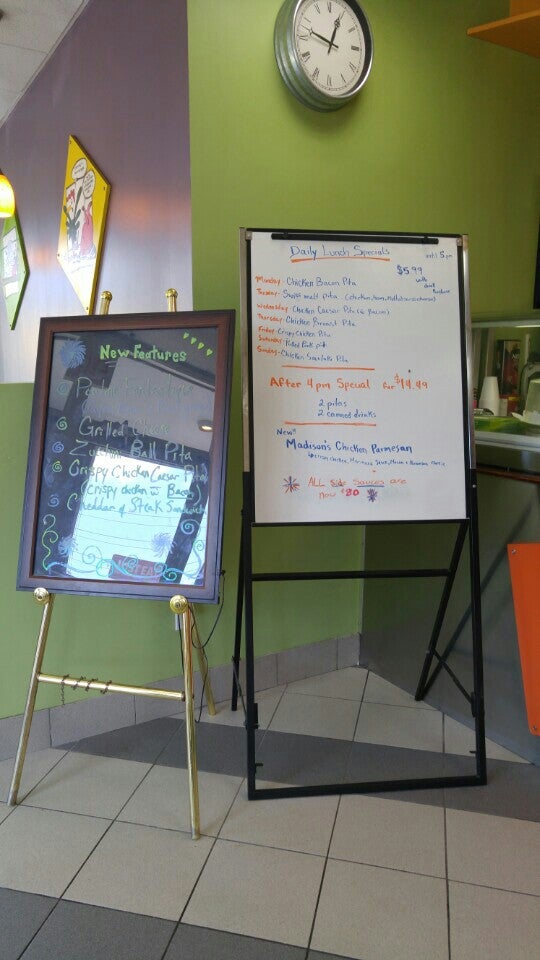 New Features
Grilled Cheese
Ball Pita
Crispy Chicken Caesar Pita
(Crispy chicken w Bacon)
Cheddar & Steak Sandwich
Daily Lunch Specials
until 3pm
$5.99
with
drink
Monday - Chicken Bacon Pita
Tuesday -
Wednesday - Chicken Caesar Pita (w Bacon)
Thursday - Chicken Breast Pita
Friday - Crispy Chicken Pita
Saturday - Pulled Pork pita
Sunday - Chicken Souvlaki Pita
After 4 pm Special for $14.49
2 pitas
2 canned drinks
New!!
Madison's Chicken Parmesan
ALL Side Sauces are
now